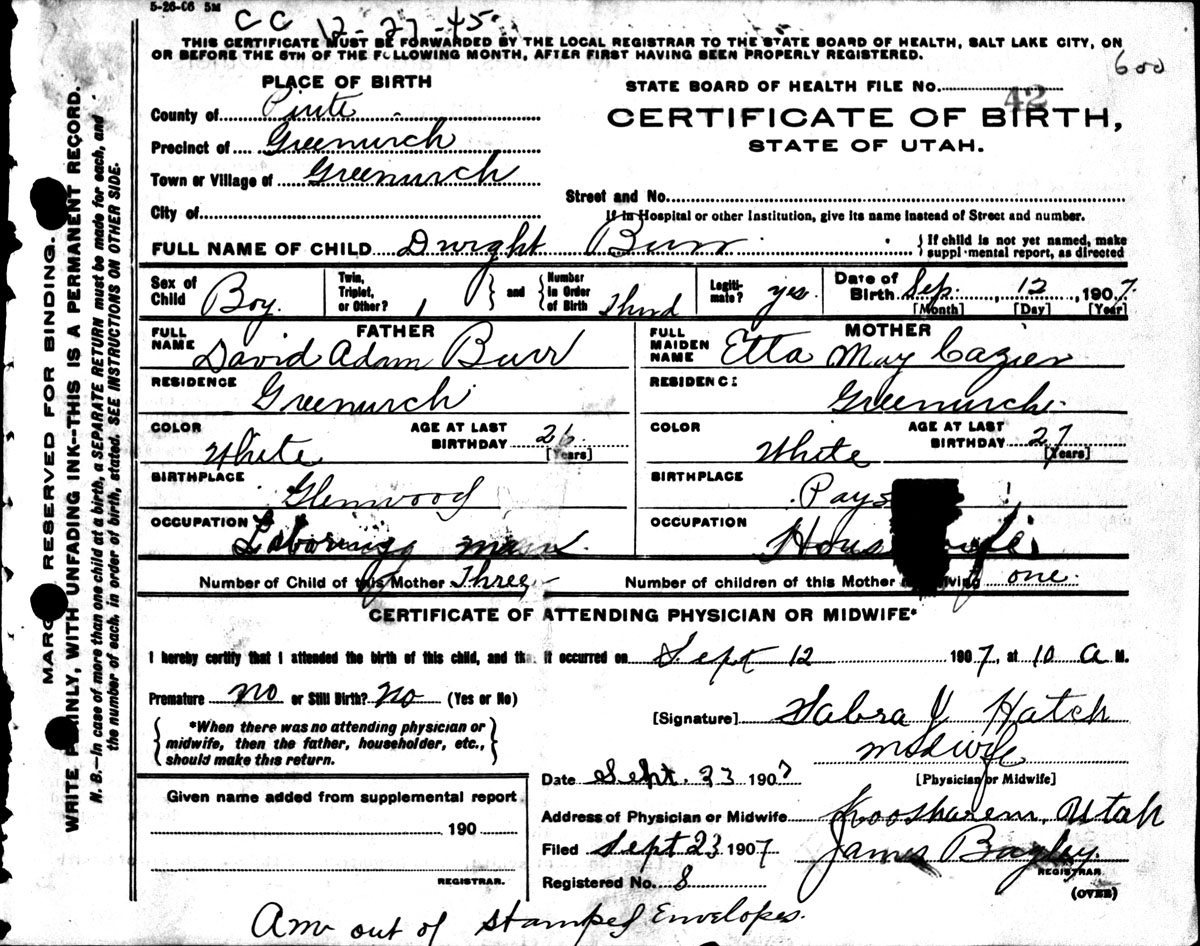 5-26-06 5M
CC 12-27-45
THIS CERTIFICATE MUST BE FORWARDED BY THE LOCAL REGISTRAR TO THE STATE BOARD OF HEALTH, SALT LAKE CITY, ON
OR BEFORE THE 5TH OF THE FOLLOWING MONTH, AFTER FIRST HAVING BEEN PROPERLY REGISTERED.
600
PLACE OF BIRTH
STATE BOARD OF HEALTH FILE NO. 42
County of Piute
CERTIFICATE OF BIRTH,
STATE OF UTAH.
Precinct of Greenwich
Town or Village of Greenwich
Street and No.
City of
If in Hospital or other Institution, give its name instead of Street and number.
FULL NAME OF CHILD Dwight Burr
If child is not yet named, make
supplemental report, as directed
Sex of Child Boy
Twin, Triplet, or Other? 1 and Number in Order of Birth Third
Legitimate? yes
Date of Birth Sep. 12, 1907.
[Month] [Day] [Year]
FATHER
FULL NAME David Adam Burr
RESIDENCE
Greenwich
COLOR White
AGE AT LAST BIRTHDAY 26
[Years]
BIRTHPLACE
Glenwood
OCCUPATION Laboring man
MOTHER
FULL MAIDEN NAME Etta May Cazier
RESIDENCE
Greenwich
COLOR White
AGE AT LAST BIRTHDAY 27
[Years]
BIRTHPLACE
Pays
OCCUPATION
Housewife
Number of Child of this Mother Three
Number of children of this Mother now living one
CERTIFICATE OF ATTENDING PHYSICIAN OR MIDWIFE*
I hereby certify that I attended the birth of this child, and that it occurred on Sept 12 1907, at 10 A M.
Premature no or Still Birth? no (Yes or No)
*When there was no attending physician or
midwife, then the father, householder, etc.,
should make this return.
[Signature] Sabra J Hatch
Midwife
[Physician or Midwife]
Date Sept. 23 1907
Given name added from supplemental report
190
REGISTRAR.
Address of Physician or Midwife Koosharem, Utah
Filed Sept 23 1907
James Bagley.
REGISTRAR
Registered No. 8
(OVER)
Am out of Stamped Envelopes.
MARGIN RESERVED FOR BINDING.
WRITE PLAINLY, WITH UNFADING INK--THIS IS A PERMANENT RECORD.
N. B.--In case of more than one child at a birth, a SEPARATE RETURN must be made for each, and
the number of each, in order of birth, stated. SEE INSTRUCTIONS ON OTHER SIDE.